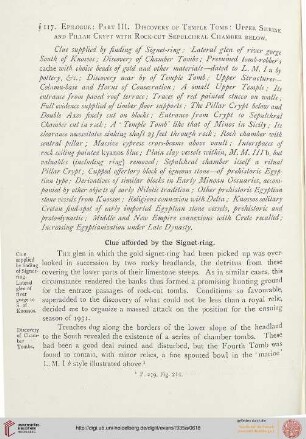 § 117. EPILOGUE: PART III. DISCOVERY OF TEMPLE TOMB: UPPER SHRINE
AND PILLAR CRYPT WITH ROCK-CUT SEPULCHRAL CHAMBER BELOW.
Clue supplied by finding of Signet-ring; Lateral glen of river gorge
South of Knossos; Discovery of Chamber Tombs; Presumed tomb-robber's
cache with chatic beads of gold and other materials—dated to L. M. I a by
pottery, &c.; Discovery near by of Temple Tomb; Upper Structures—
Column-bases and Horns of Consecration; A small Upper Temple; Its
entrance from paved roof terrace; Trace of red painted stucco on walls;
Full evidence supplied of timber floor supports; The Pillar Crypt below and
Double Axes finely cut on blocks; Entrance from Crypt to Sepulchral
Chamber cut in rock; A 'Temple Tomb' like that of Minos in Sicily; Its
clearance necessitates sinking shaft 23 feet through rock; Rock chamber with
central pillar; Massive cypress cross-beams above vault; Interspaces of
rock ceiling painted kyanos blue; Plain clay vessels within, M. M. III b, but
valuables (including ring) removed; Sepulchral chamber itself a ritual
Pillar Crypt; Cupped offertory block of igneous stone—of prehistoric Egyp-
tian type; Derivatives of similar blocks in Early Minoan Ossuaries, accom-
panied by other objects of early Nilotic tradition; Other prehistoric Egyptian
stone vessels from Knossos; Religious connexion with Delta; Knossos solitary
Cretan find-spot of early imported Egyptian stone vessels, prehistoric and
proto-dynastic; Middle and New Empire connexions with Crete recalled;
Increasing Egyptianization under Late Dynasty.
Clue afforded by the Signet-ring.
Clue
supplied
by finding
of Signet-
ring.
Lateral
glen of
river
gorge to
S. of
Knossos.
THE glen in which the gold signet-ring had been picked up was over-
looked in succession by two rocky headlands, the detritus from these
covering the lower parts of their limestone steeps. As in similar cases, this
circumstance rendered the banks thus formed a promising hunting ground
for the entrance passages of rock-cut tombs. Conditions so favourable,
superadded to the discovery of what could not be less than a royal role,
decided me to organize a massed attack on the position for the ensuing
season of 1931.
Discovery
of Cham-
ber
Tombs.
Trenches dug along the borders of the lower slope of the headland
to the South revealed the existence of a series of chamber tombs. These
had been a good deal ruined and disturbed, but the Fourth Tomb was
found to contain, with minor relics, a fine spouted bowl in the 'marine'
L. M. I b style illustrated above ¹
¹ P. 279, Fig. 212.
http://digi.ub.uni-heidelberg.de/diglit/evans1935a/0618